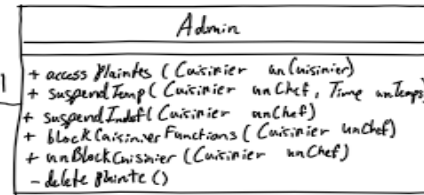 Admin
1
+ access Plaintes (Cuisinier unCuisinier)
+ suspendTemp (Cuisinier unChef, Time unTemps)
+ suspendIndef (Cuisinier unChef)
+ blockCuisinierFunctions (Cuisinier unChef)
+ unBlockCuisinier (Cuisinier unChef)
- delete Plainte ()